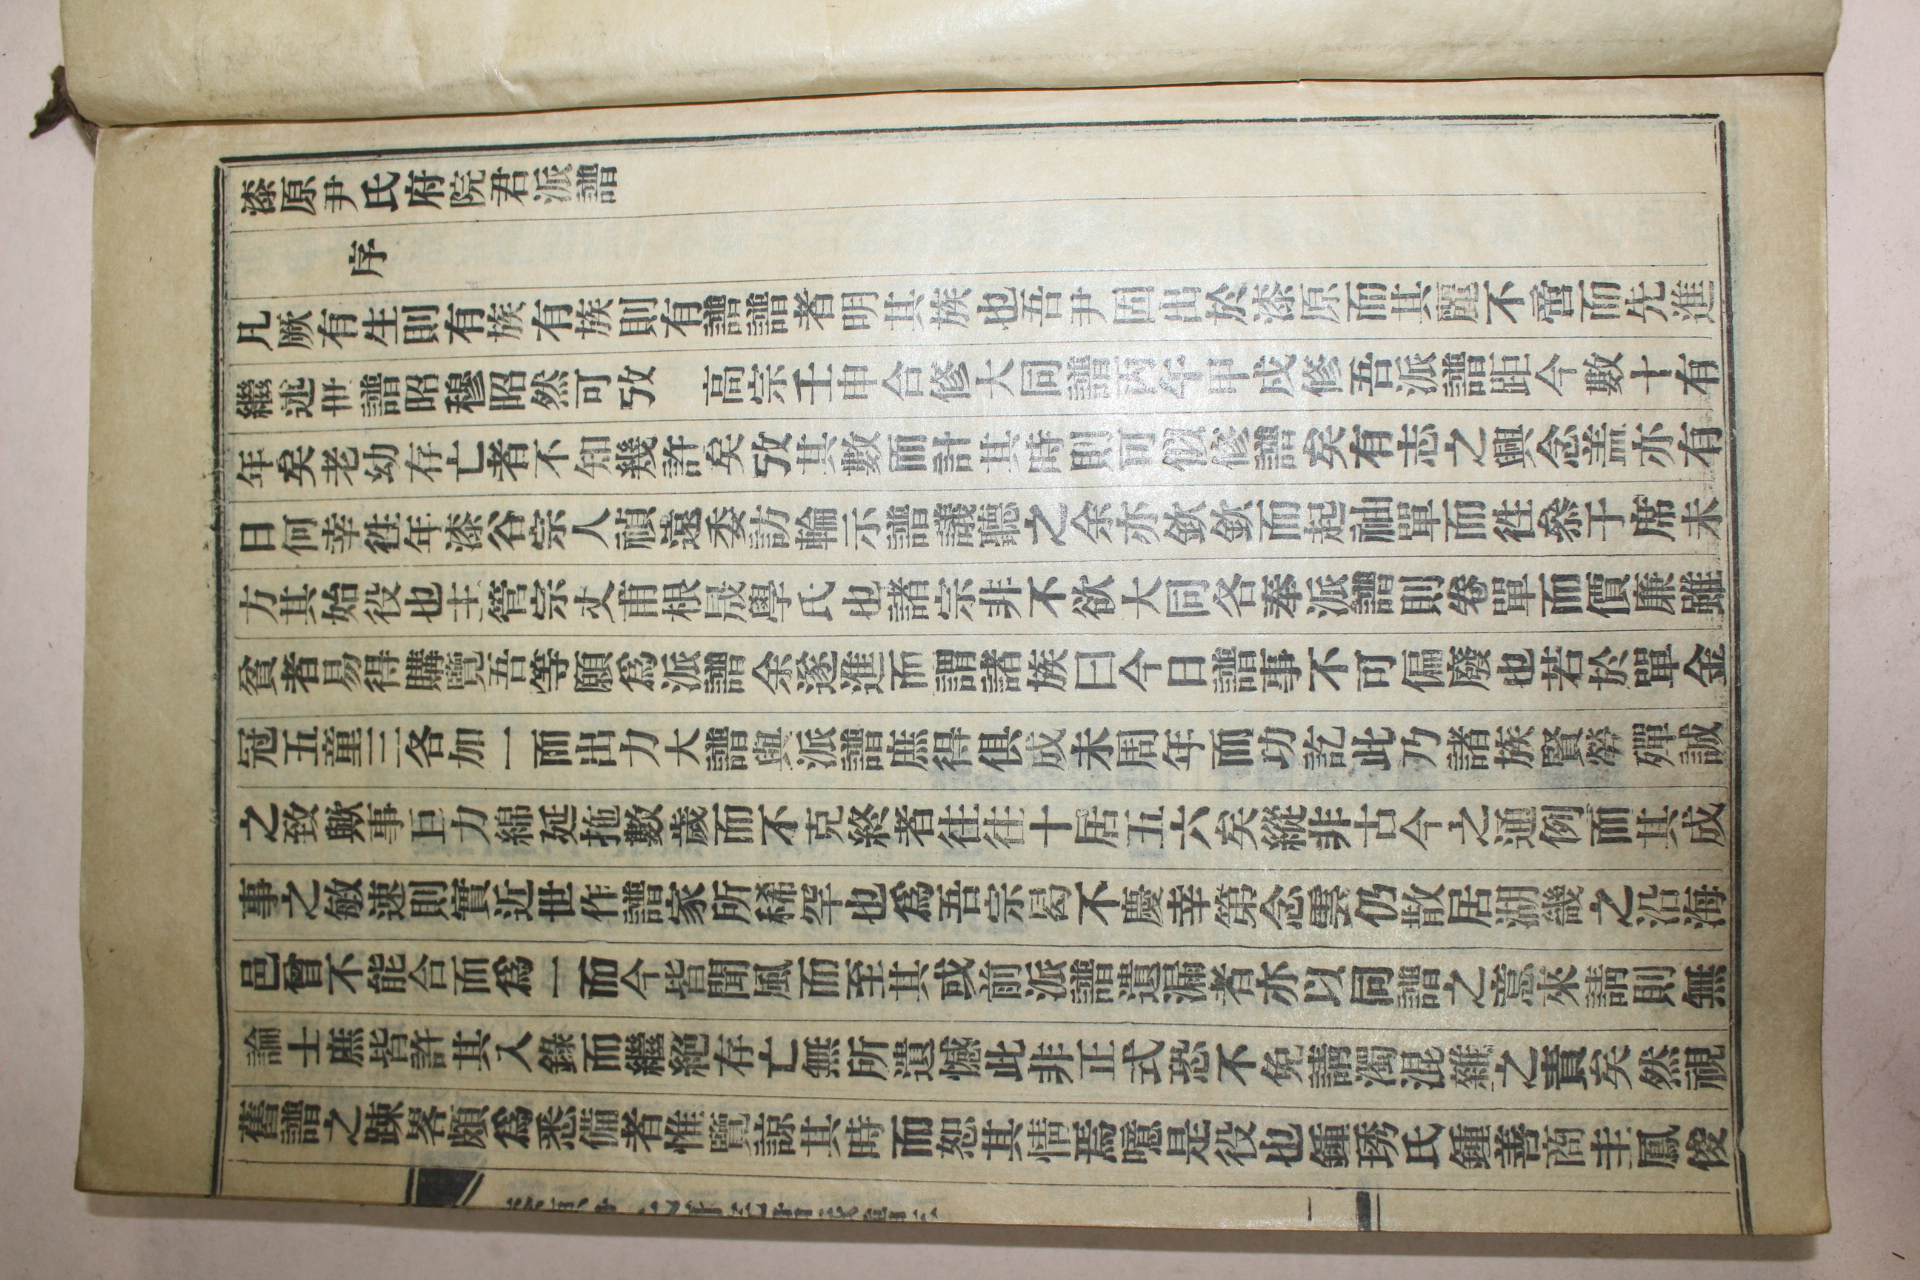 漆原尹氏府院君派譜
序
凡厥有生則有族有族則有譜譜者明其族也吾尹固出於漆原而其麗不啻而先進
繼述世譜昭穆昭然可攷 高宗壬申合修大同譜丙午甲戍修吾派譜距今數十有
年矣老幼存亡者不知幾許矣攷其數而計其時則可假修譜矣有志之興念盖亦有
日何幸徃年漆谷宗人禎遠委訪輪示譜議聽之余亦欽欽而起袖單而徃叅于席未
方其始役也主管宗丈甫根晟學氏也諸宗非不欲大同各奉派譜則卷單而價廉雖
貧者易得購覽吾等願爲派譜余遂進而謂諸族曰今日譜事不可偏廢也若於單金
冠五童三各加一而出力大譜與派譜庶得俱成未周年而功訖此乃諸族賢勞殫誠
之致歟事巨力綿延拖數歲而不克終者往往十居五六矣縱非古今之通例而其成
事之敏速則實近世作譜家所稀罕也爲吾宗曷不慶幸第念雲仍散居湖畿之沿海
邑曾不能合而爲一而今皆聞風而至其或前派譜遺漏者亦以同譜之意來請則無
論士庶皆許其入錄而繼絕存亡無所遺憾此非正式恐不免請濁混雜之責矣然視
舊譜之踈畧頗爲悉備者惟覽諒其時而恕其情焉噫是役也鍾琇氏鍾善商圭鳳俊
一